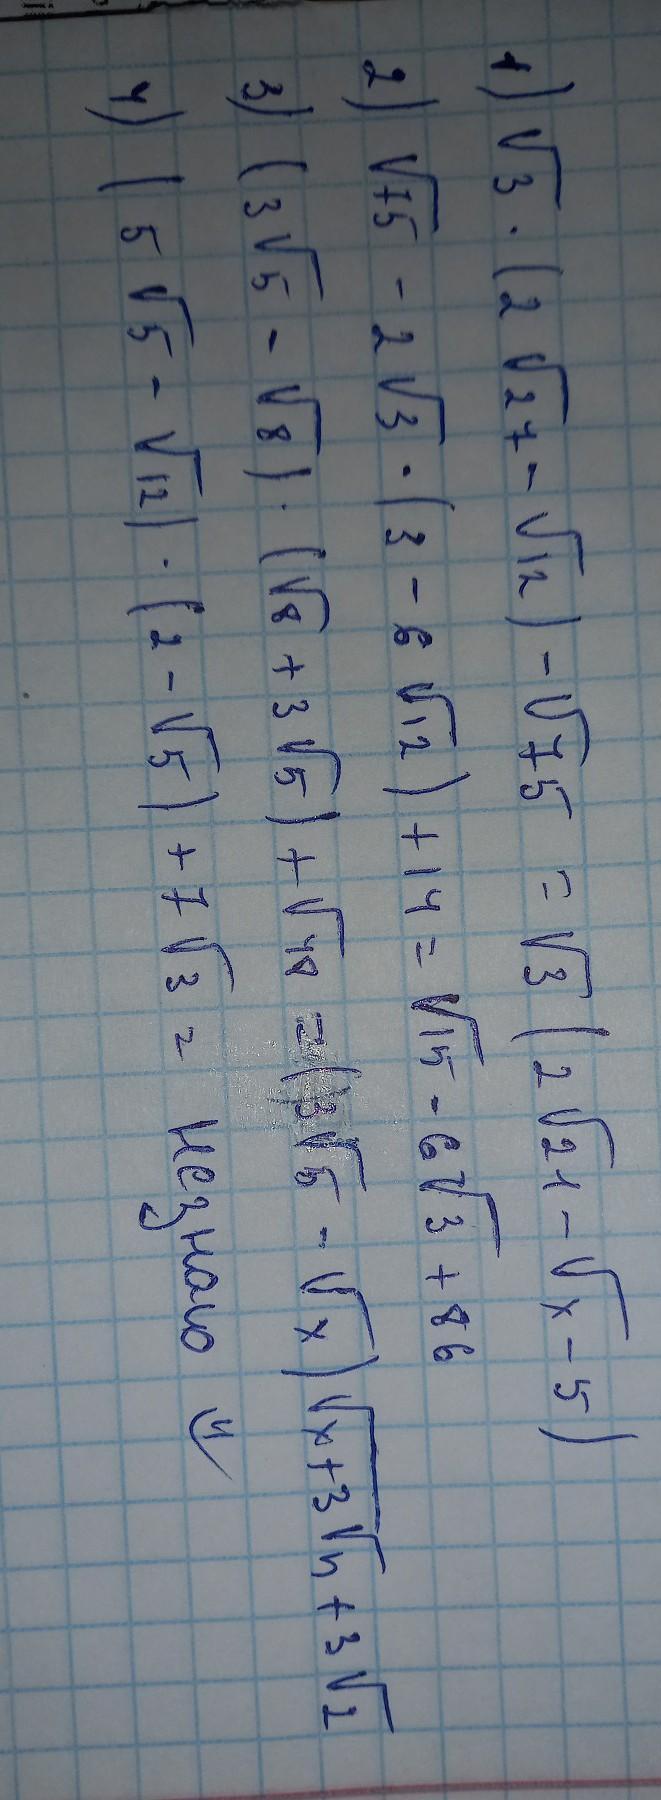 1) √3 · (2√27 - √12) - √75 = √3 (2√21 - √x - 5)
2) √75 - 2√3 · (3 - 6√12) + 14 = √15 - 6√3 + 86
3) (3√5 - √8) · (√8 + 3√5) + √18 = (3√5 - √x) √x+3√n + 3√2
4) (5√5 - √12) · (2 - √5) + 7√3 = незнаю